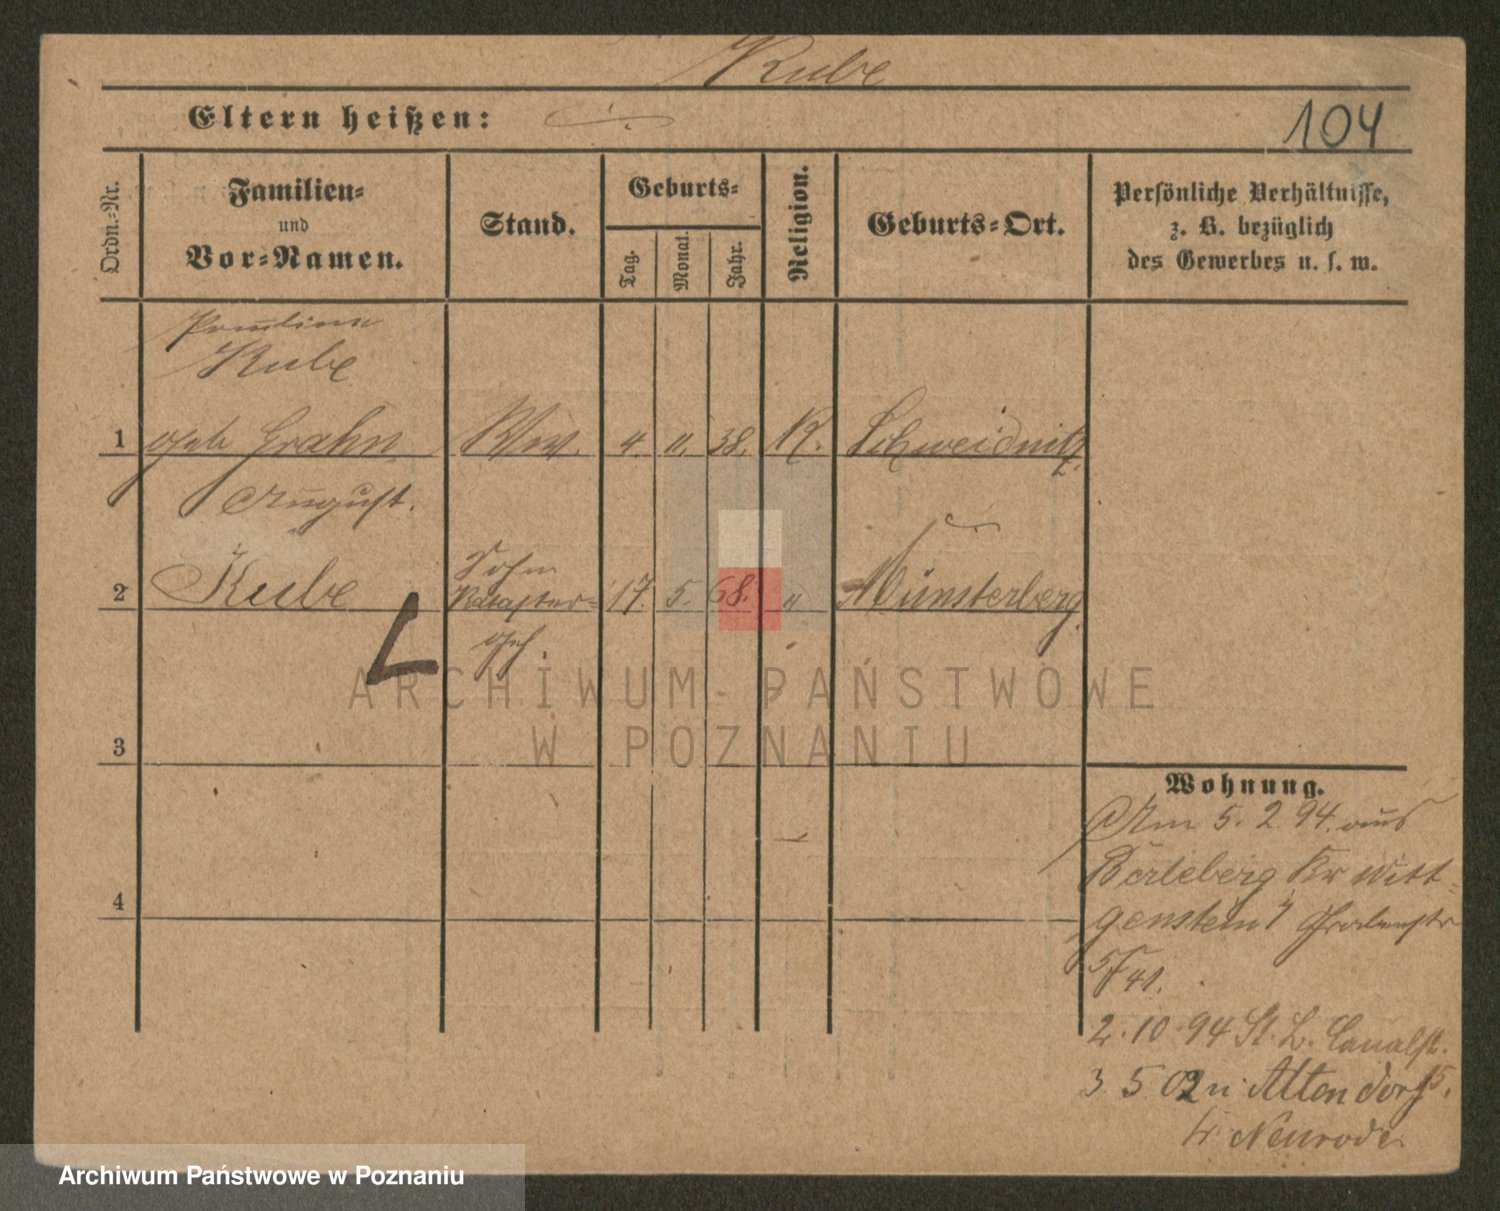 Kube
Eltern heißen:
104
Ordn.-Nr.
Familien-
und
Vor-Namen.
Stand.
Geburts-
Tag.
Monat.
Jahr.
Religion.
Geburts-Ort.
Persönliche Verhältnisse,
z. B. bezüglich
des Gewerbes u. s. w.
Pauline
Kube
1 geb Grahn Ww. 4. 11. 38. K. Schweidnitz
August.
2 Kube
Sohn
Kataster-
geh.
17. 5. 68. " Münsterberg
3
4
Wohnung.
Am 5. 2. 94. aus
Berleberg Kr Witt-
genstein
41.
2. 10. 94 St. L. Canalst.
15.
3 5 02 n. Altendorf
Kr Neurode.
ARCHIWUM PAŃSTWOWE
W POZNANIU
Archiwum Państwowe w Poznaniu